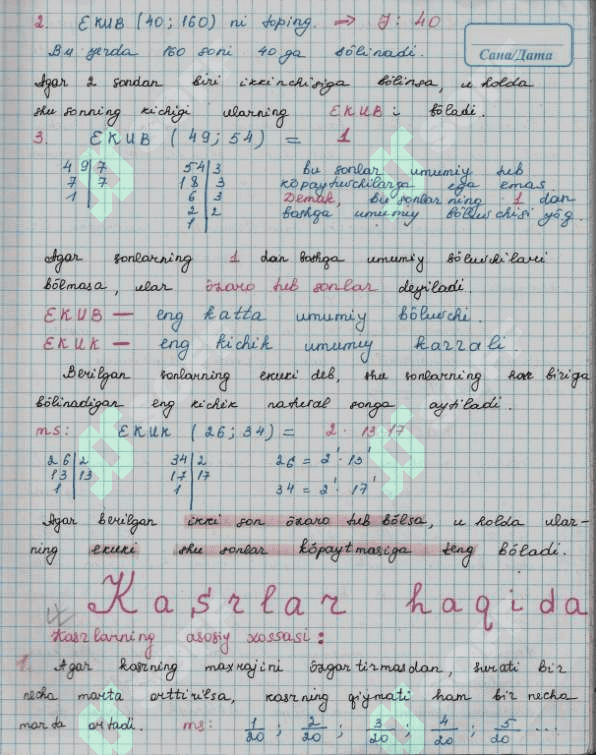 2. EKUB (40; 160) ni toping. ⇒ J: 40
Сана/Дата
Bu yerda 160 soni 40 ga bōlinadi.
Agar 2 sondan biri ikkinchisiga bōlinsa, u holda
shu sonning kichigi ularning EKUBi bōladi.
3. EKUB (49; 54) = 1
49|7 54|3 bu sonlar umumiy tub
7|7 18|3 kōpaytuvchilarga ega emas
1| 6|3 Demak, bu sonlarning 1 dan
2|2 boshqa umumiy bōluvchisi yōq.
1|
Agar sonlarning 1 dan boshqa umumiy bōluvchilari
bōlmasa, ular ōzaro tub sonlar deyiladi.
EKUB — eng katta umumiy bōluvchi.
EKUK — eng kichik umumiy karrali.
Berilgan sonlarning ekuki deb, shu sonlarning har biriga
bōlinadigan eng kichik natural songa aytiladi.
ms: EKUK (26; 34) = 2 · 13 · 17
26|2 34|2 26 = 2¹ · 13¹
13|13 17|17
1| 1| 34 = 2¹ · 17¹
Agar berilgan ikki son ōzaro tub bōlsa, u holda ular-
ning ekuki shu sonlar kōpaytmasiga teng bōladi.
Kasrlar haqida
Kasrlarning asosiy xossasi:
1. Agar kasrning maxrajini ōzgartirmasdan, surati bir
necha marta orttirilsa, kasrning qiymati ham bir necha
marta ortadi. ms: 1/20 ; 2/20 ; 3/20 ; 4/20 ; 5/20 ...